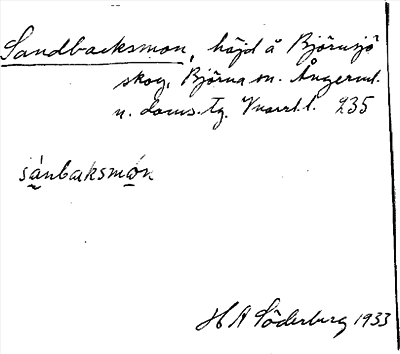 Sandbacksmon, höjd å Björnsjö
skog, Björna sn. Ångerml.
n. doms. tg. Västrl. l. 235
sánbaksmón
H A Söderberg 1933